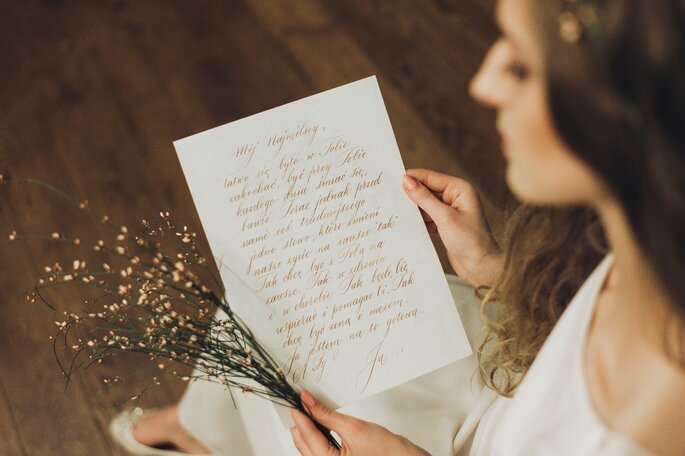 Mój Najmilszy,
łatwo się było w Tobie
zakochać, być przy Tobie
każdego dnia, śmiać się,
bawić. Teraz jednak przed
nami coś trudniejszego.
Jedno słowo, które zmieni
nasze życie na zawsze "tak"
Tak chcę być z Tobą na
zawsze. Tak w zdrowiu
i w chorobie. Tak będę Cię
wspierać i pomagać Ci. Tak
chcę być żoną a mężem.
Ja jestem na to gotowa.
A Ty?
Ja...